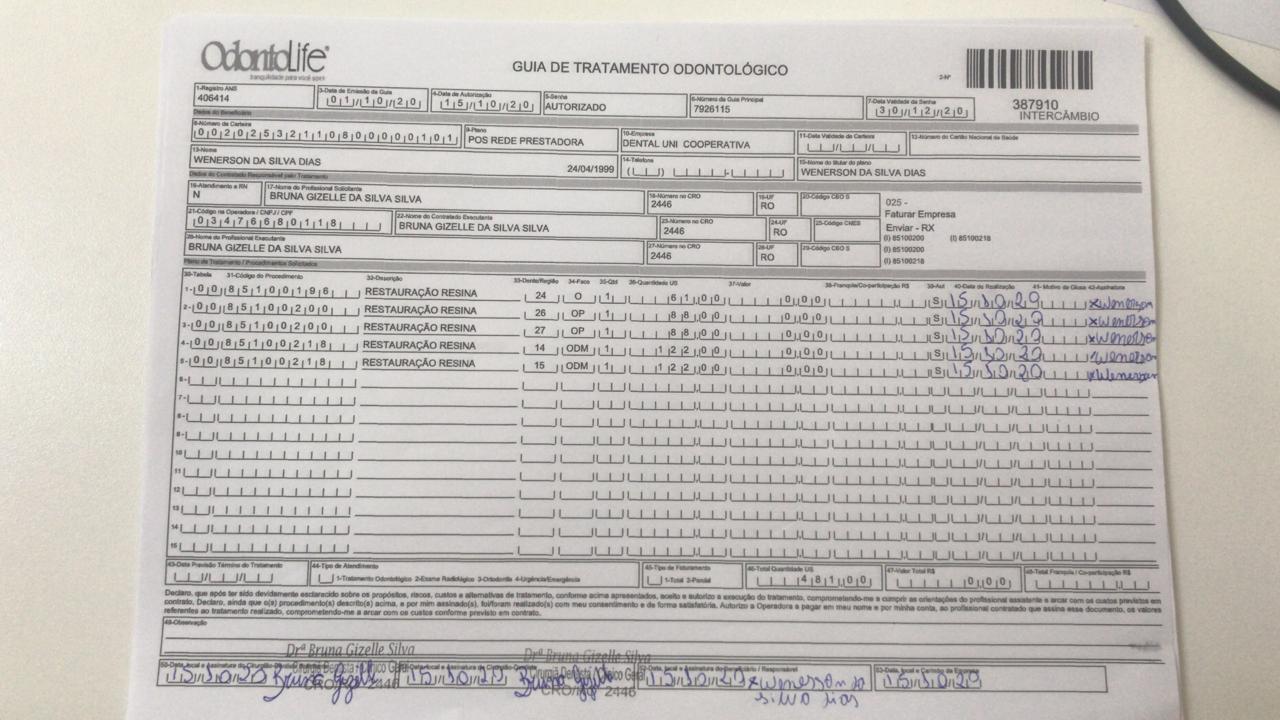 OdontoLife
tranquilidade para você sorrir
GUIA DE TRATAMENTO ODONTOLÓGICO
2-Nº
387910
INTERCÂMBIO
1-Registro ANS 3-Data de Emissão da Guia 4-Data de Autorização 5-Senha 6-Número da Guia Principal 7-Data Validade da Senha
406414 01/10/20 15/10/20 AUTORIZADO 7926115 30/12/20
Dados do Beneficiário
8-Número da Carteira 9-Plano 10-Empresa 11-Data Validade da Carteira 12-Número do Cartão Nacional de Saúde
00202532110800000101 POS REDE PRESTADORA DENTAL UNI COOPERATIVA
13-Nome 14-Telefone 15-Nome do titular do plano
WENERSON DA SILVA DIAS 24/04/1999 WENERSON DA SILVA DIAS
Dados do Contratado Responsável pelo Tratamento
16-Atendimento a RN 17-Nome do Profissional Solicitante 18-Número no CRO 19-UF 20-Código CBO S
N BRUNA GIZELLE DA SILVA SILVA 2446 RO
025 -
Faturar Empresa
Enviar - RX
(I) 85100200 (I) 85100218
(I) 85100200
(I) 85100218
21-Código na Operadora / CNPJ / CPF 22-Nome do Contratado Executante 23-Número no CRO 24-UF 25-Código CNES
03476680118 BRUNA GIZELLE DA SILVA SILVA 2446 RO
26-Nome do Profissional Executante 27-Número no CRO 28-UF 29-Código CBO S
BRUNA GIZELLE DA SILVA SILVA 2446 RO
Plano de Tratamento / Procedimentos Solicitados
30-Tabela 31-Código do Procedimento 32-Descrição 33-Dente/Região 34-Face 35-Qtd 36-Quantidade US 37-Valor 38-Franquia/Co-participação R$ 39-Aut 40-Data de Realização 41- Motivo da Glosa 42-Assinatura
1- 00 85100196 RESTAURAÇÃO RESINA 24 O 1 61,00 0,00 S 15/10/20 x Wenerson
2- 00 85100200 RESTAURAÇÃO RESINA 26 OP 1 88,00 0,00 S 15/10/20 x Wenerson
3- 00 85100200 RESTAURAÇÃO RESINA 27 OP 1 88,00 0,00 S 15/10/20 x Wenerson
4- 00 85100218 RESTAURAÇÃO RESINA 14 ODM 1 122,00 0,00 S 15/10/20 x Wenerson
5- 00 85100218 RESTAURAÇÃO RESINA 15 ODM 1 122,00 0,00 S 15/10/20 x Wenerson
6-
7-
8-
9-
10
11
12
13
14
15
43-Data Previsão Término do Tratamento 44-Tipo de Atendimento 45-Tipo de Faturamento 46-Total Quantidade US 47-Valor Total R$ 48-Total Franquia / Co-participação R$
1-Tratamento Odontológico 2-Exame Radiológico 3-Ortodontia 4-Urgência/Emergência 1-Total 2-Parcial 481,00 0,00
Declaro, que após ter sido devidamente esclarecido sobre os propósitos, riscos, custos e alternativas de tratamento, conforme acima apresentados, aceito e autorizo a execução do tratamento, comprometendo-me a cumprir as orientações do profissional assistente e arcar com os custos previstos em
contrato. Declaro, ainda que o(s) procedimento(s) descrito(s) acima, e por mim assinado(s), foi/foram realizado(s) com meu consentimento e de forma satisfatória. Autorizo a Operadora a pagar em meu nome e por minha conta, ao profissional contratado que assina esse documento, os valores
referentes ao tratamento realizado, comprometendo-me a arcar com os custos conforme previsto em contrato.
49-Observação
Drª Bruna Gizelle Silva Drª Bruna Gizelle Silva
50-Data, local e Assinatura do Cirurgião-Dentista 51-Data, local e Assinatura do Cirurgião-Dentista 52-Data, local e Assinatura do Beneficiário / Responsável 53-Data, local e Carimbo da Empresa
15/10/20 Bruna Gizelle 15/10/20 Bruna Gizelle 15/10/20 x Wenerson da 15/10/20
CRO/RO 2446 CRO/RO 2446 silva dias